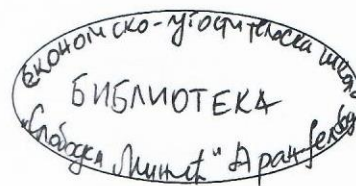 Економско-угоститељска школа
БИБЛИОТЕКА
"Слободан Минић" Аранђеловац